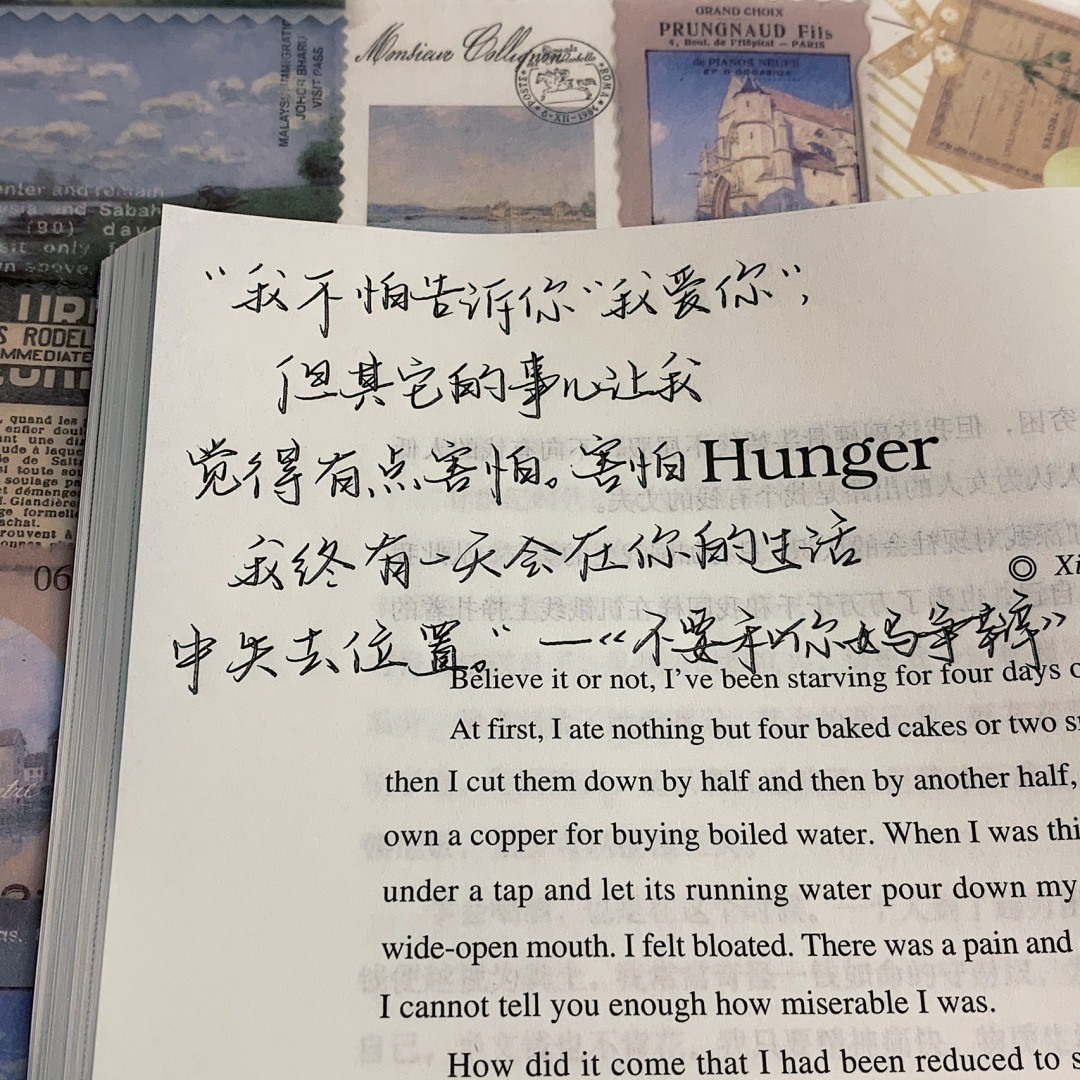 Monsieur Collignon
POSTE
ROMA
GRAND CHOIX
PRUNGNAUD Fils
4, Boul. de l'Hôpital — PARIS
de PIANOS NEUFS
ET D'OCCASION
MALAYSIA IMMIGRATI
JOHOR BHARU
VISIT PASS
enter and remain
ysia and Sabah
(90) day
sit only f
"我不怕告诉你"我爱你",
但其它的事儿让我
觉得有点害怕。害怕
Hunger
我终有一天会在你的生活
中失去位置。" —"不要和你妈争辩"
S RODEL
IMMEDIATE
quand les
06
◎ Xi
Believe it or not, I've been starving for four days o
At first, I ate nothing but four baked cakes or two s
then I cut them down by half and then by another half,
own a copper for buying boiled water. When I was thi
under a tap and let its running water pour down my
wide-open mouth. I felt bloated. There was a pain and
I cannot tell you enough how miserable I was.
How did it come that I had been reduced to s